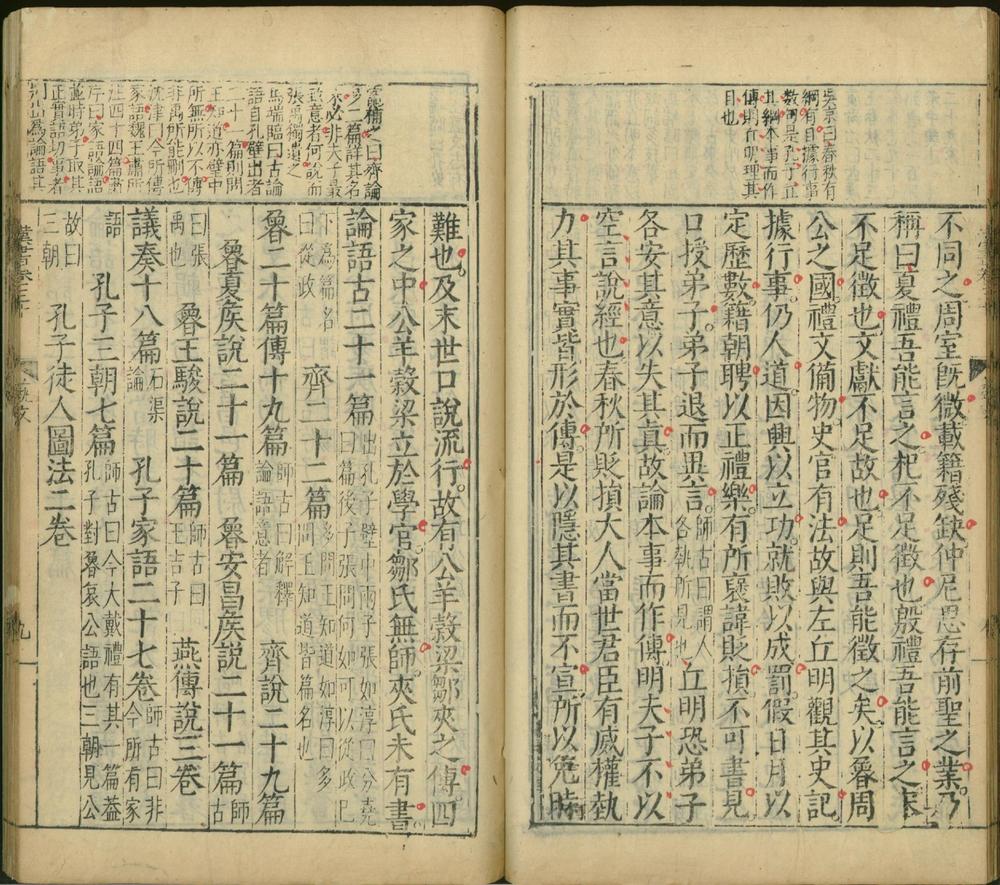 吳京曰春秋有
綱有目據行事
數句是孔子正
其綱本事而作
傳則左明理其
目也
不同之周室既微載籍殘缺仲尼思存前聖之業乃
稱曰夏禮吾能言之杞不足徵也殷禮吾能言之宋
不足徵也文獻不足故也足則吾能徵之矣以魯周
公之國禮文備物史官有法故與左丘明觀其史記
據行事仍人道因興以立功就敗以成罰假日月以
定歷數籍朝聘以正禮樂有所襃諱貶損不可書見
口授弟子弟子退而異言師古曰謂人各執所見也丘明恐弟子
各安其意以失其真故論本事而作傳明夫子不以
空言說經也春秋所貶損大人當世君臣有威權埶
力其事實皆形於傳是以隱其書而不宣所以免時
補之曰齊論
多二篇詳其名
必非夫子最
致意者何說而
張禹獨遺之
馬端臨曰古論
語自孔壁出者
二十一篇則問
王知道亦壁中
所無所以不傳
非禹所能刪也
沈津曰今所傳
家語魏王肅所
註四十四篇
序曰家語論語
並時弟子取其
正實語切事者
別出為論語其
難也及末世口說流行故有公羊榖梁鄒夾之傳四
家之中公羊榖梁立於學官鄒氏無師夾氏未有書
論語古二十一篇出孔子壁中兩子張如淳曰分堯曰篇後子張問何如可以從政已
下為篇名曰從政 齊二十二篇多問王知道如淳曰多問王知道皆篇名也
魯二十篇傳十九篇師古曰解釋論語意者 齊說二十九篇
魯夏侯說二十一篇 魯安昌侯說二十一篇師古
曰張禹也 魯王駿說二十篇師古曰王吉子 燕傳說三卷
議奏十八篇石渠論 孔子家語二十七卷師古曰非今所有家
語 孔子三朝七篇師古曰今大戴禮有其一篇蓋孔子對魯哀公語也三朝見公
故曰三朝 孔子徒人圖法二卷
漢書卷三十
藝文
九